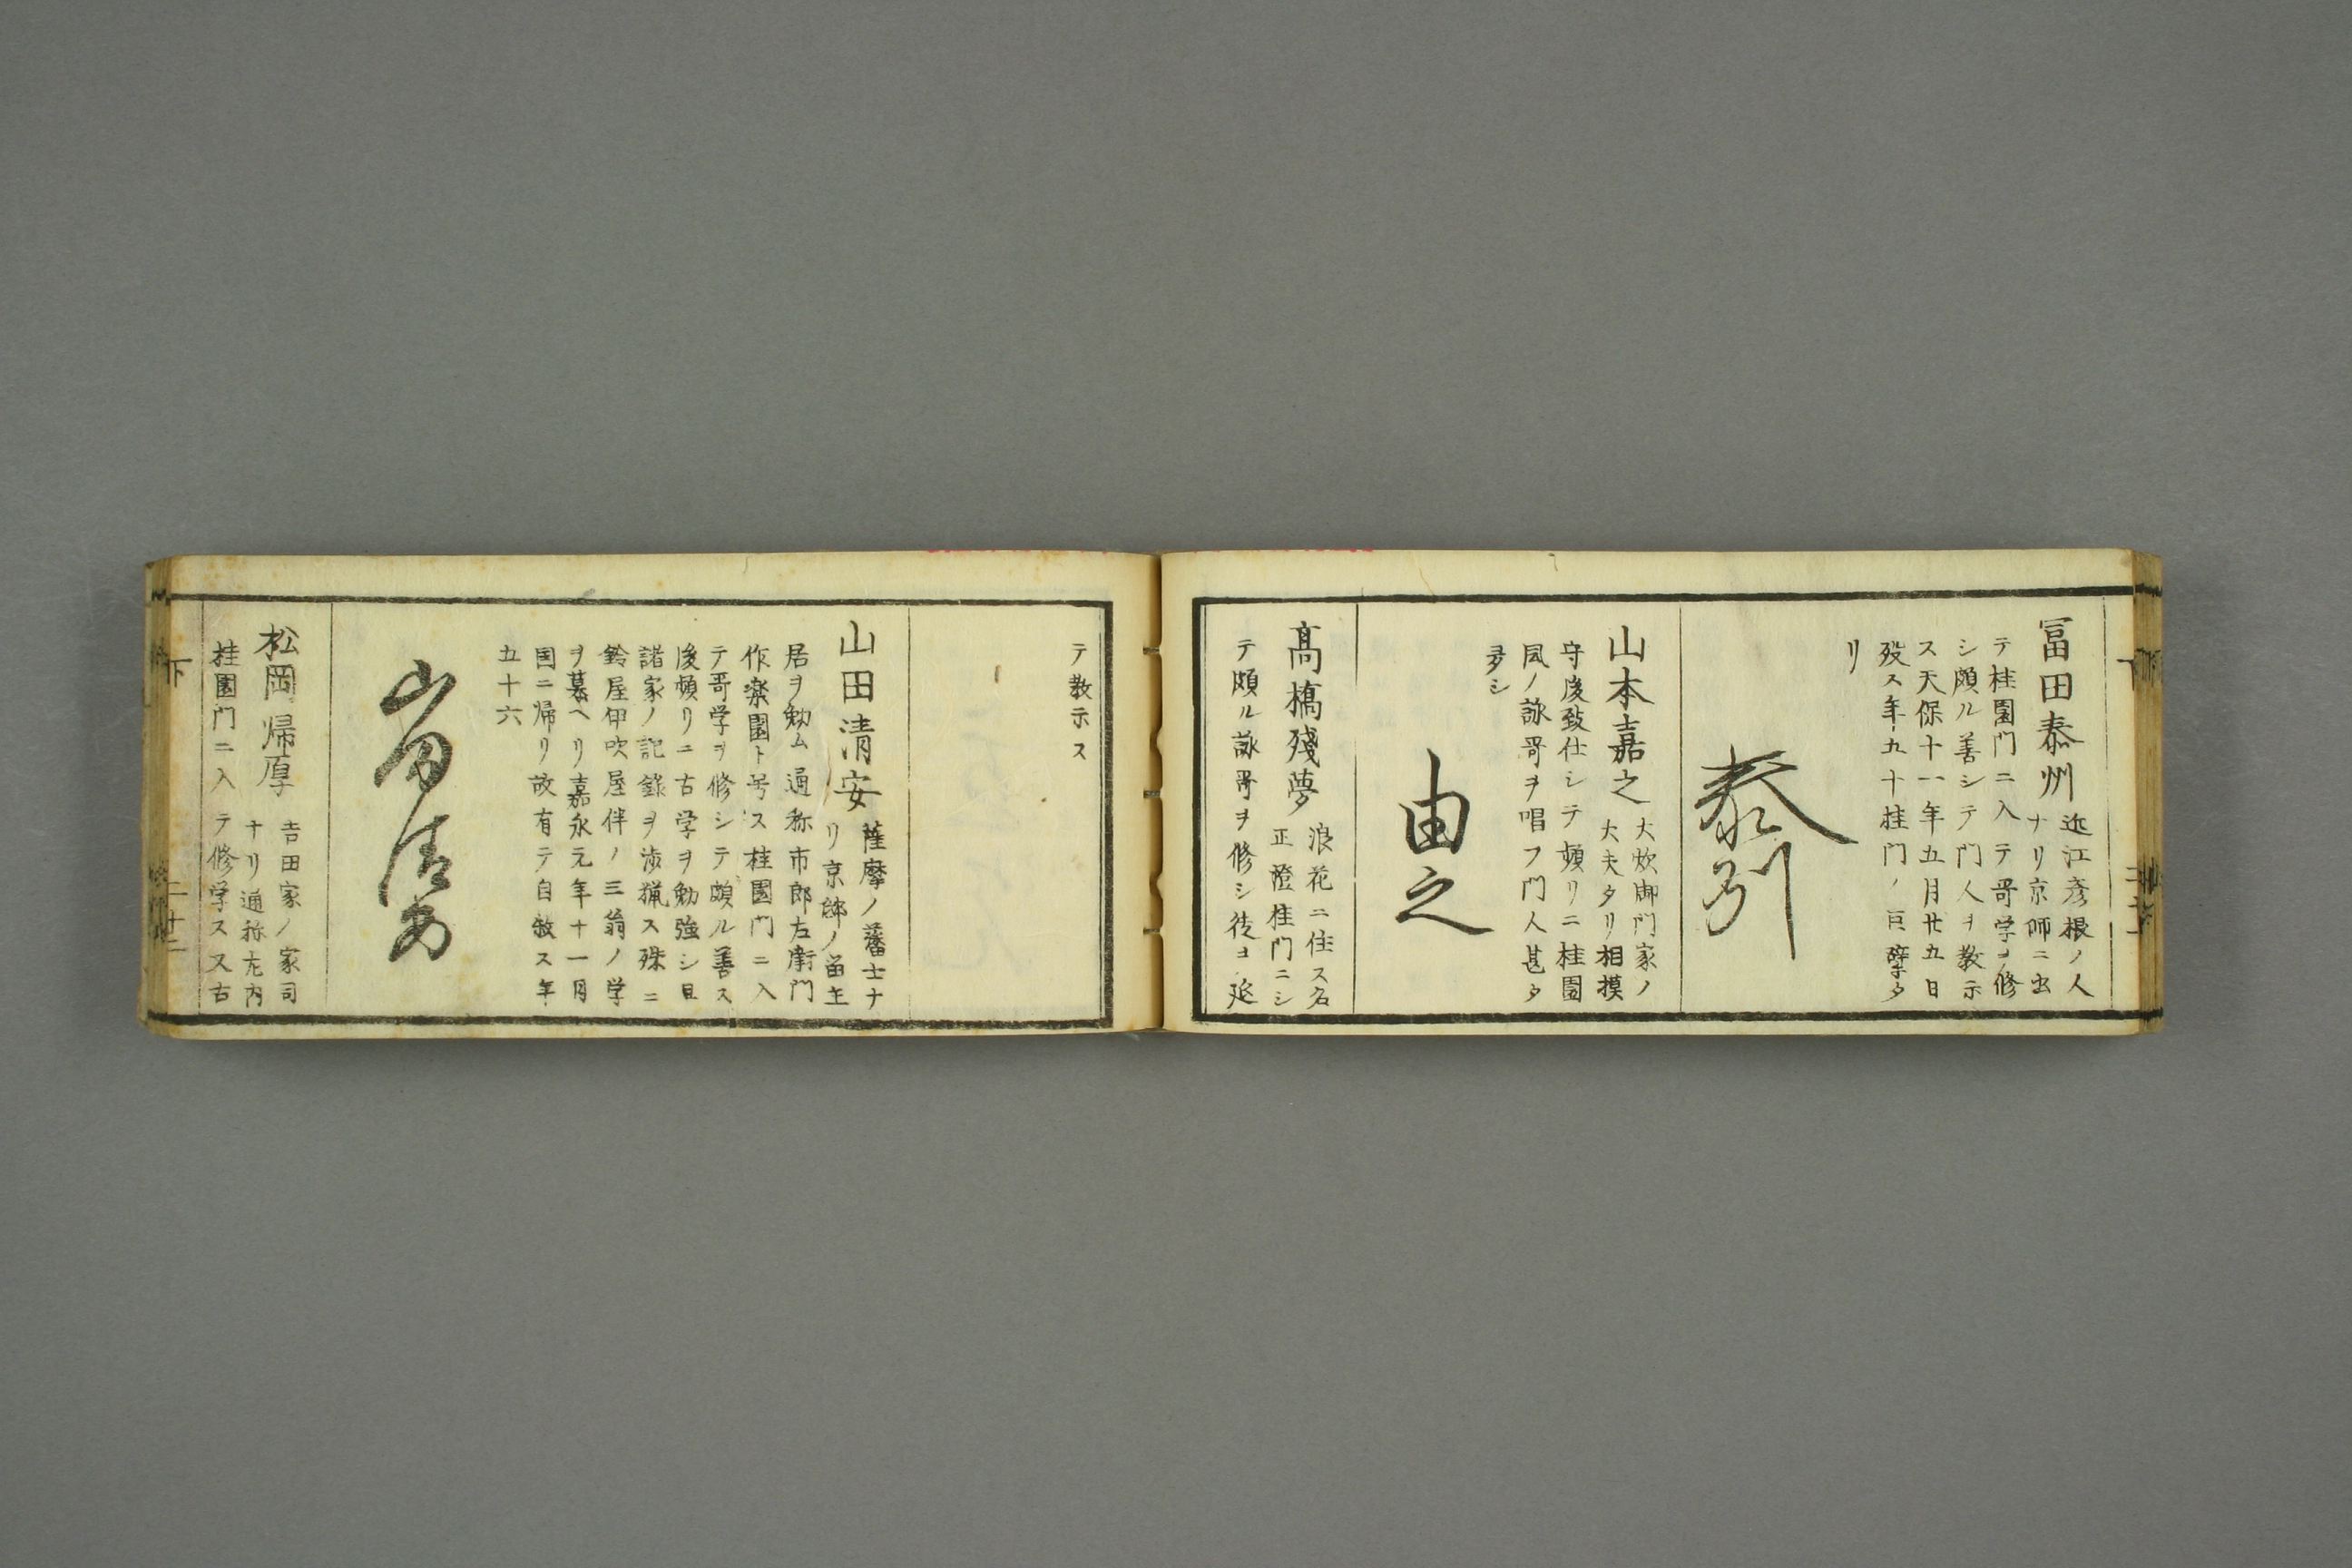 冨田泰州 近江彦根ノ人
ナリ京師ニ出
テ桂園門ニ入テ哥学ヲ修
シ頗ル善シテ門人ヲ教示
ス天保十一年五月廿五日
殁ス年九十桂門ノ巨擘タ
リ
泰州
山本嘉之 大炊御門家ノ
大夫タリ相摸
守後致仕シテ頻リニ桂園
風ノ詠哥ヲ唱フ門人甚タ
多シ
由之
髙橋殘夢 浪花ニ住ス名
正澄桂門ニシ
テ頗ル詠哥ヲ修シ徒ヨ延
テ教示ス
山田清安 薩摩ノ藩士ナ
リ京師ノ留主
居ヲ勉ム通称市郎左衛門
作楽園ト号ス桂園門ニ入
テ哥学ヲ修シテ頗ル善ス
後頻リニ古学ヲ勉強シ且
諸家ノ記録ヲ渉猟ス殊ニ
鈴屋伊吹屋伴ノ三翁ノ学
ヲ慕ヘリ嘉永元年十一月
国ニ帰リ故有テ自殺ス年
五十六
山田清安
松岡帰厚 吉田家ノ家司
ナリ通称左内
桂園門ニ入テ修学ス又古
下 二十二